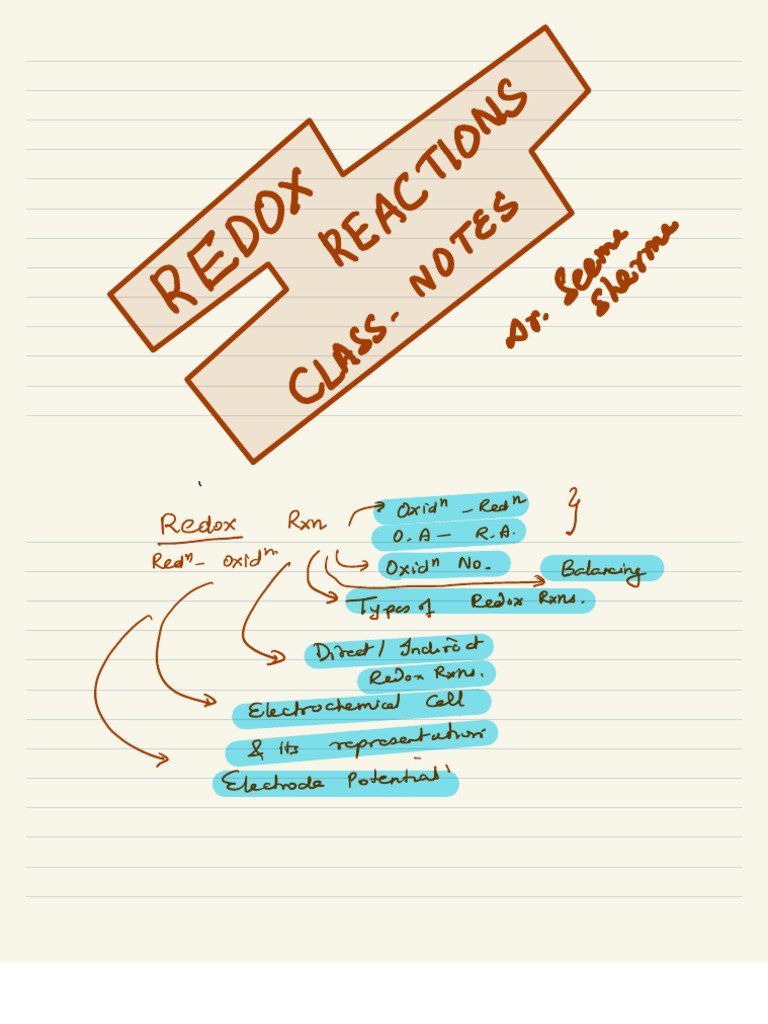 REDOX
REACTIONS
CLASS. NOTES
Dr. Seema
Sharma
Redox Rxn
Redⁿ - Oxidⁿ
Oxidⁿ - Redⁿ
O.A - R.A.
Oxidⁿ No.
Balancing
Types of Redox Rxns.
Direct / Indirect
Redox Rxns.
Electrochemical Cell
& its representation
Electrode Potential